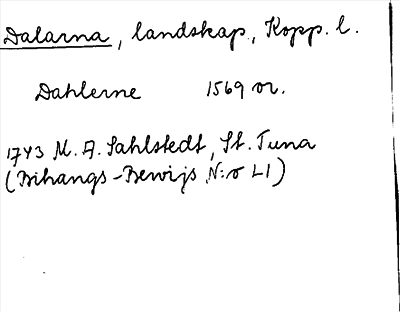 Dalarna, landskap, Kopp. l.
Dahlerne 1569 or.
1743 M. A. Sahlstedt, St. Tuna
(Bihangs-Bewijs N:o LI)